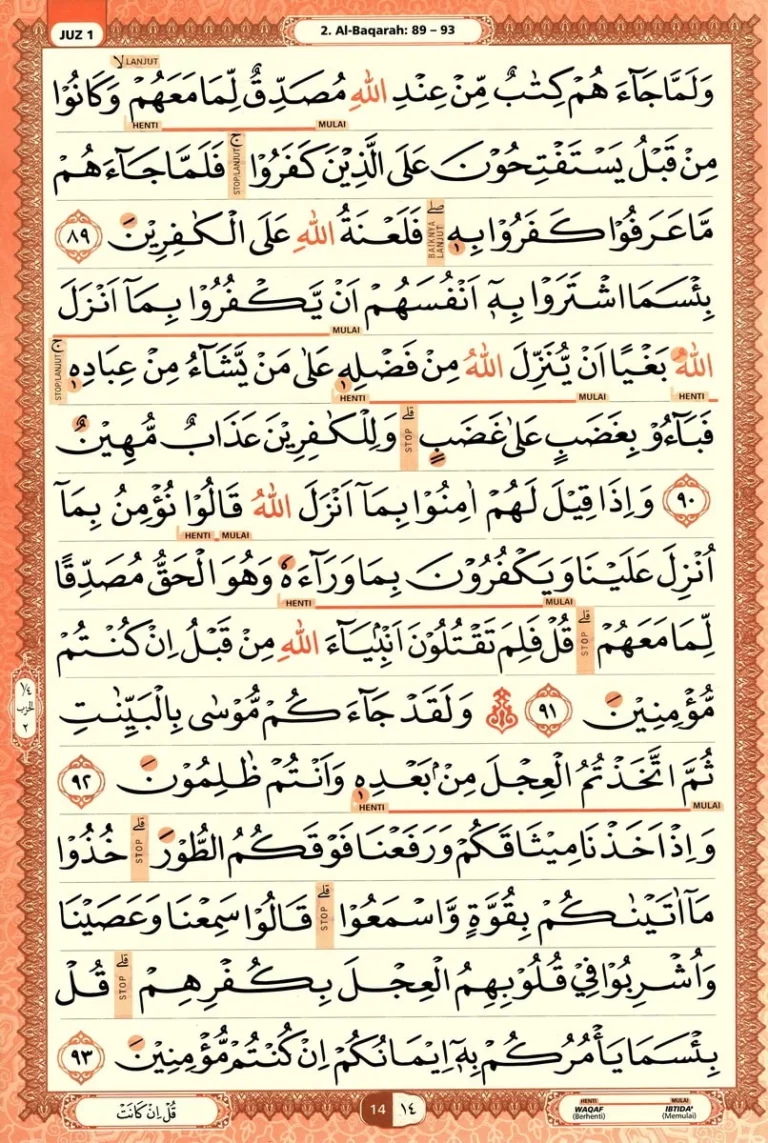 JUZ 1
2. Al-Baqarah: 89 – 93
لا LANJUT
وَلَمَّا جَاۤءَهُمْ كِتٰبٌ مِّنْ عِنْدِ اللهِ مُصَدِّقٌ لِّمَا مَعَهُمْ وَكَانُوْا
HENTI MULAI
مِنْ قَبْلُ يَسْتَفْتِحُوْنَ عَلَى الَّذِيْنَ كَفَرُوْا ۚ فَلَمَّا جَاۤءَهُمْ
STOP/LANJUT
مَّا عَرَفُوْا كَفَرُوْا بِهٖ ۖ فَلَعْنَةُ اللهِ عَلَى الْكٰفِرِيْنَ ٨٩
BAIKNYA LANJUT
بِئْسَمَا اشْتَرَوْا بِهٖٓ اَنْفُسَهُمْ اَنْ يَّكْفُرُوْا بِمَآ اَنْزَلَ
MULAI
اللهُ بَغْيًا اَنْ يُّنَزِّلَ اللهُ مِنْ فَضْلِهٖ عَلٰى مَنْ يَّشَاۤءُ مِنْ عِبَادِهٖ ۚ
STOP/LANJUT
HENTI MULAI HENTI
فَبَاۤءُوْ بِغَضَبٍ عَلٰى غَضَبٍ ۗ وَلِلْكٰفِرِيْنَ عَذَابٌ مُّهِيْنٌ
STOP
٩٠ وَاِذَا قِيْلَ لَهُمْ اٰمِنُوْا بِمَآ اَنْزَلَ اللهُ قَالُوْا نُؤْمِنُ بِمَآ
HENTI MULAI
اُنْزِلَ عَلَيْنَا وَيَكْفُرُوْنَ بِمَا وَرَاۤءَهٗ وَهُوَ الْحَقُّ مُصَدِّقًا
HENTI MULAI
لِّمَا مَعَهُمْ ۗ قُلْ فَلِمَ تَقْتُلُوْنَ اَنْۢبِيَاۤءَ اللهِ مِنْ قَبْلُ اِنْ كُنْتُمْ
STOP
مُّؤْمِنِيْنَ ٩١ ۞ وَلَقَدْ جَاۤءَكُمْ مُّوْسٰى بِالْبَيِّنٰتِ
١/٤ الحزب ٢
ثُمَّ اتَّخَذْتُمُ الْعِجْلَ مِنْۢ بَعْدِهٖ وَاَنْتُمْ ظٰلِمُوْنَ ٩٢
HENTI MULAI
وَاِذْ اَخَذْنَا مِيْثَاقَكُمْ وَرَفَعْنَا فَوْقَكُمُ الطُّوْرَ ۗ خُذُوْا
STOP
مَآ اٰتَيْنٰكُمْ بِقُوَّةٍ وَّاسْمَعُوْا ۗ قَالُوْا سَمِعْنَا وَعَصَيْنَا
STOP
وَاُشْرِبُوْا فِيْ قُلُوْبِهِمُ الْعِجْلَ بِكُفْرِهِمْ ۗ قُلْ
STOP
بِئْسَمَا يَأْمُرُكُمْ بِهٖٓ اِيْمَانُكُمْ اِنْ كُنْتُمْ مُّؤْمِنِيْنَ ٩٣
قُلْ اِنْ كَانَتْ
14 ١٤
HENTI MULAI
WAQAF IBTIDA'
(Berhenti) (Memulai)